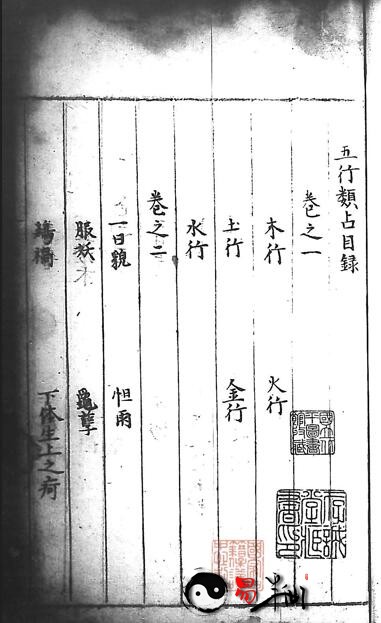 五行類占目録
卷之一
木行 火行
土行 金行
水行
卷之二
一曰貌 恒雨
服妖 龜孽
鷄禍 下体生上之痾